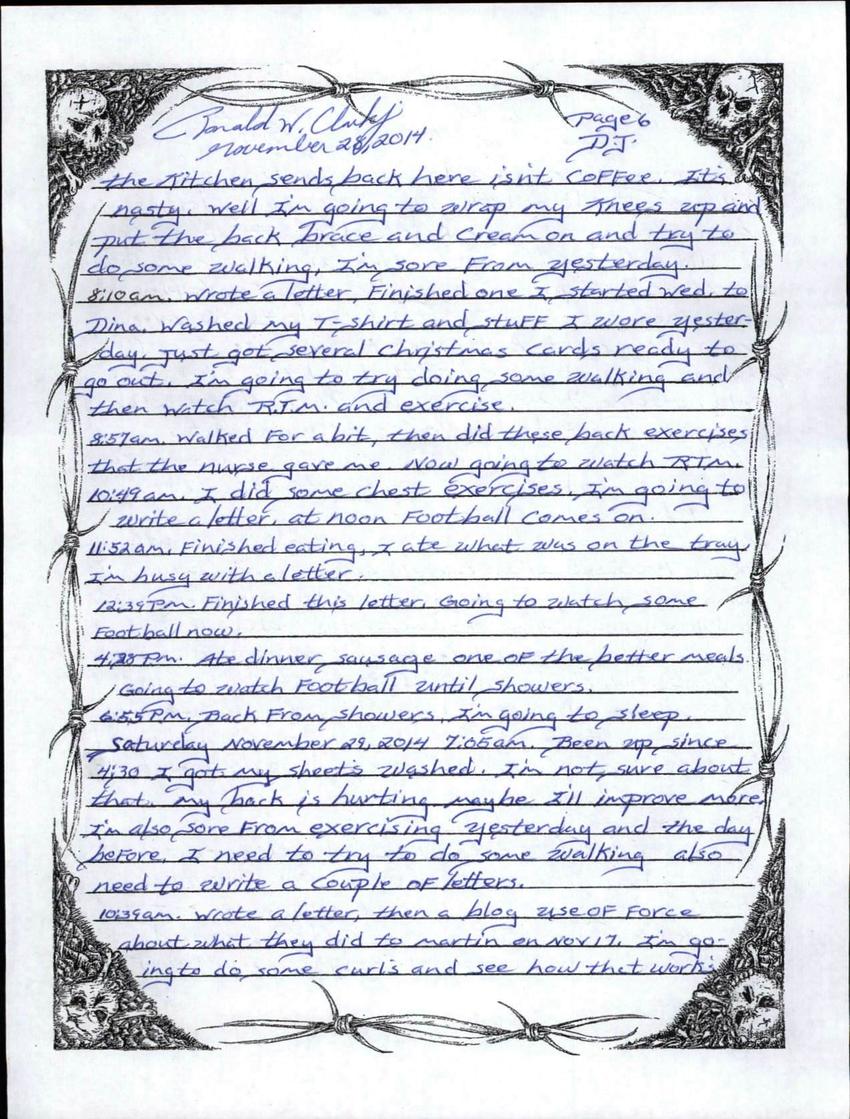 Ronald W. Clark Jr
November 28, 2014.
page 6
D.J.
the Kitchen sends back here isn't Coffee. It's
nasty. Well I'm going to wrap my Knees up and
put the back brace and Cream on and try to
do some walking, I'm sore From yesterday.
8:10am. Wrote a letter, Finished one I started Wed. to
Dina. Washed my T-shirt and stuff I wore yester-
day. Just got several Christmas Cards ready to
go out. I'm going to try doing some walking and
then watch R.T.M. and exercise.
8:57am. Walked For a bit, then did these back exercises
that the nurse gave me. Now going to watch RTM.
10:49am. I did some chest exercises. I'm going to
write a letter, at noon Football Comes on.
11:52am. Finished eating, I ate what was on the tray,
I'm busy with a letter.
12:39Pm. Finished this letter. Going to watch some
Football now.
4:28Pm. Ate dinner, sausage one of the better meals.
Going to watch Football until showers.
6:55Pm. Back From showers, I'm going to sleep.
Saturday November 29, 2014 7:05am. Been up since
4:30 I got my sheets washed. I'm not sure about
that. My back is hurting, maybe I'll improve more.
I'm also sore From exercising yesterday and the day
before. I need to try to do some walking also
need to write a Couple of letters.
10:39am. Wrote a letter, then a blog use of Force
about what they did to Martin on Nov 17. I'm go-
ing to do some curls and see how that works